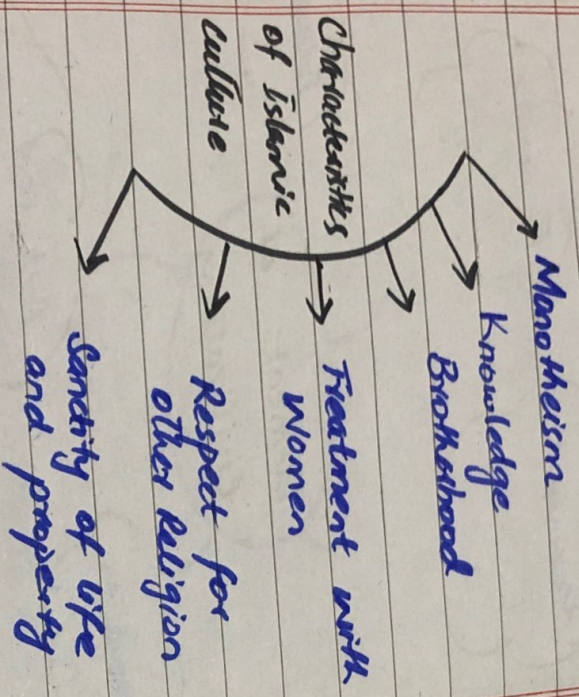 Characteristics
of Islamic
culture
Monotheism
Knowledge
Brotherhood
Treatment with
Women
Respect for
other Religion
Sanctity of life
and property